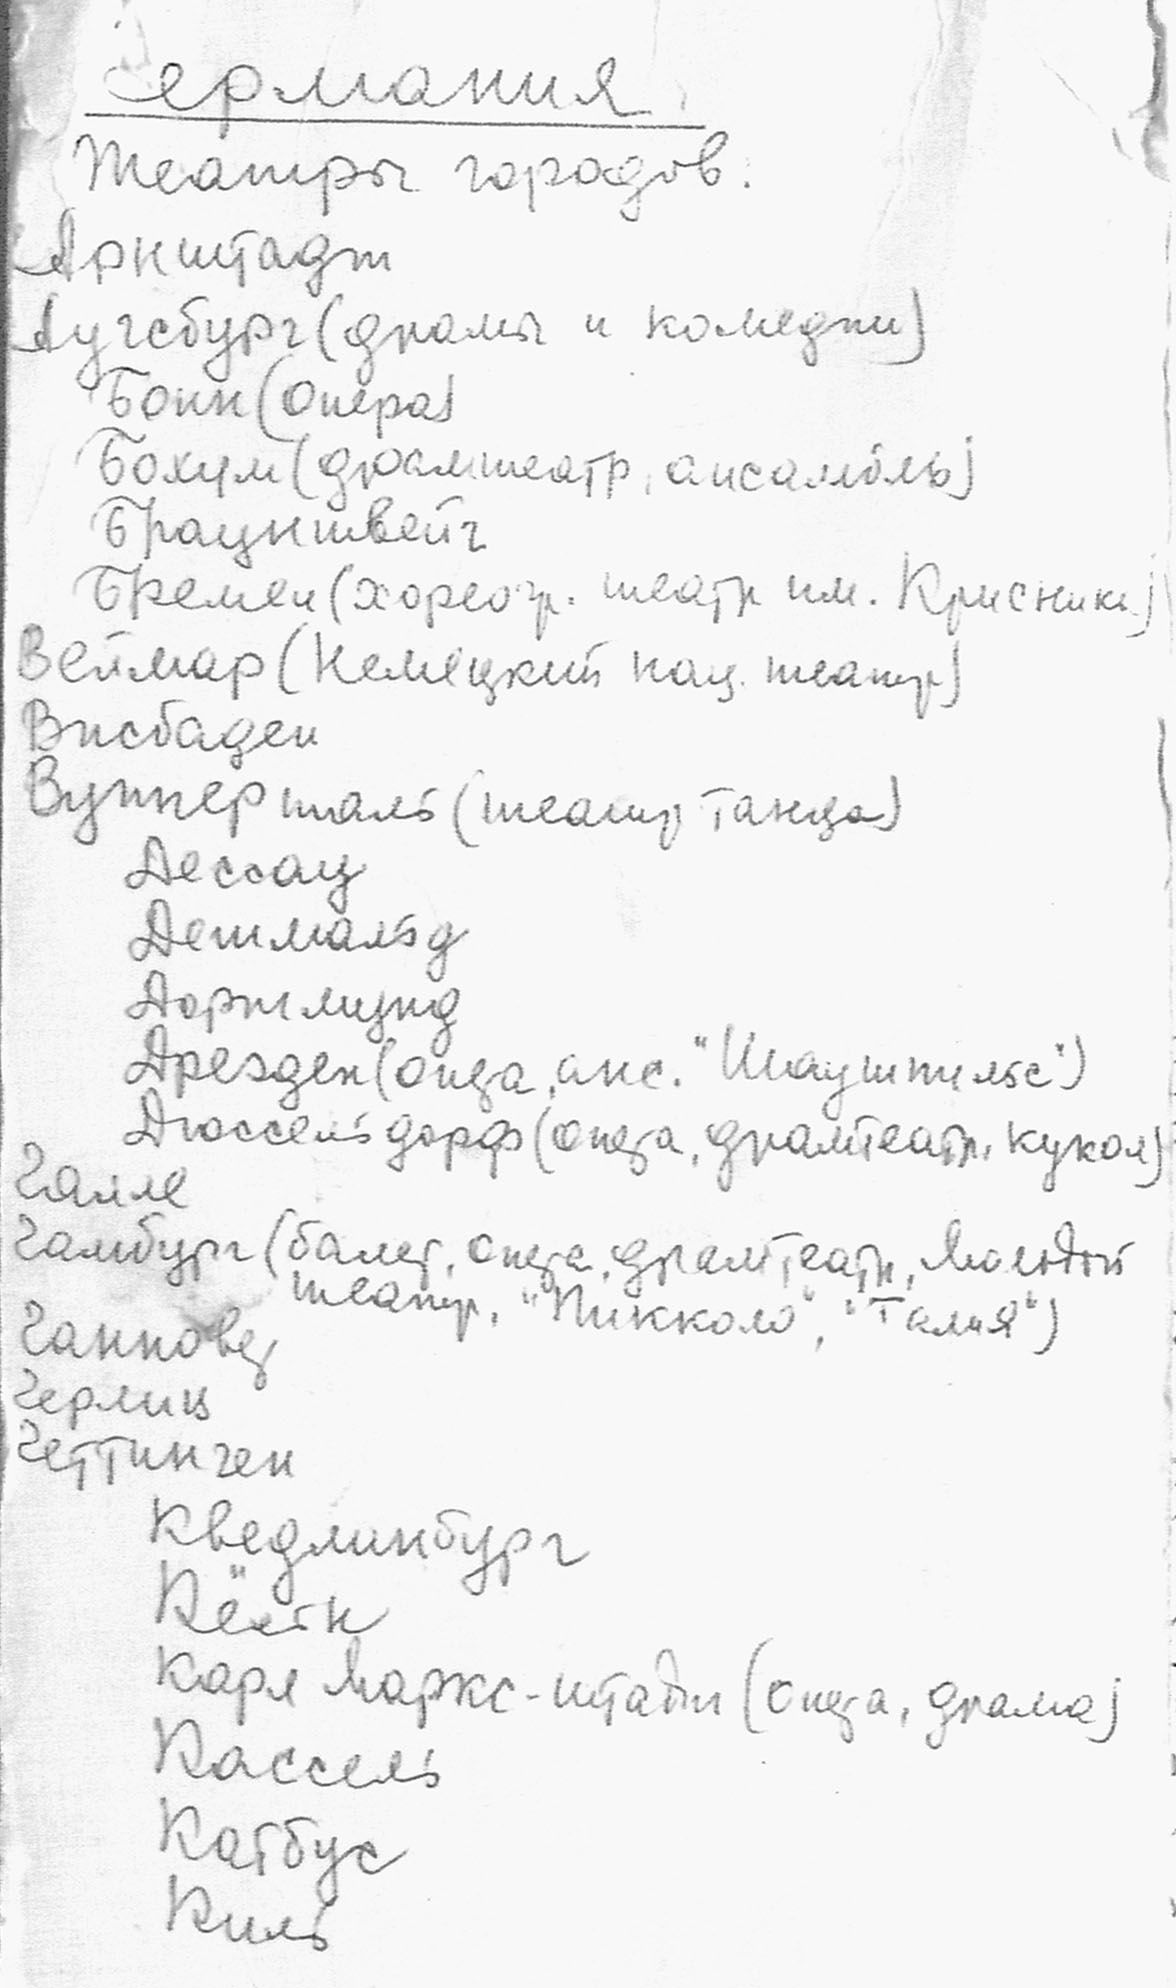 Германия
Театры городов:
Арнштадт
Аугсбург (драмы и комедии)
Бонн (опера)
Бохум (драмтеатр, ансамбль)
Брауншвейг
Бремен (хореогр. театр им.
Веймар (Немецкий нац. театр)
Висбаден
Вупперталь (театр танца)
Дессау
Детмальд
Дортмунд
Дрезден (опера, анс. "Шаушпильс")
Дюссельдорф (опера, драмтеатр, кукол)
Галле
Гамбург (балет, опера, драмтеатр, Молодой
театр, "Пикколо", "Талия")
Ганновер
Герлиц
Геттинген
Кведлинбург
Кёльн
Карл Маркс-штадт (опера, драма)
Кассель
Катбус
Киль